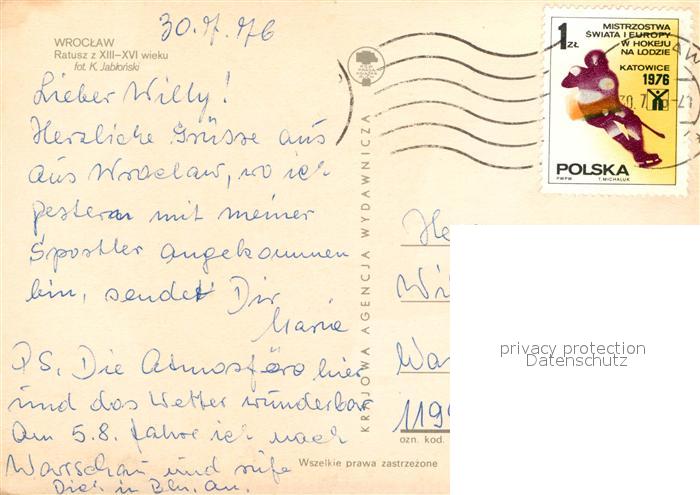 30.7.76
WROCŁAW
Ratusz z XIII-XVI wieku
fot. K. Jabłoński
Lieber Willy!
Herzliche Grüsse aus
aus Wrocław, wo ich
gestern mit meiner
Sportler angekommen
bin, sendet Dir
Marie
P.S. Die Atmosfäre hier
und das Wetter wunderbar
Am 5.8. fahre ich nach
Warschau und rufe
Dich in Bln. an.
KRAJOWA AGENCJA WYDAWNICZA
MISTRZOSTWA
ŚWIATA I EUROPY
W HOKEJU
NA LODZIE
KATOWICE
1976
1 ZŁ
POLSKA
PWPW T. MICHALUK
30.7
He
Wi
War
119
ozn. kod.
Wszelkie prawa zastrzeżone
privacy protection
Datenschutz